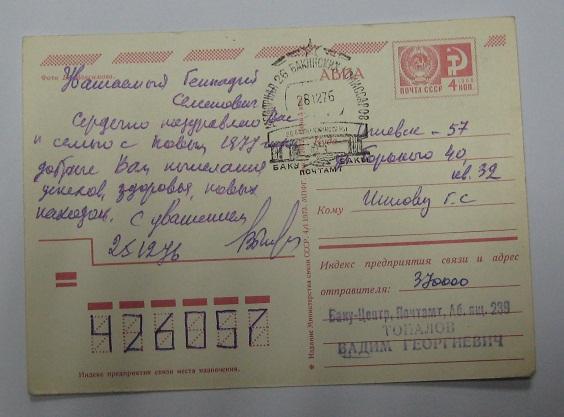 Уважаемый Геннадий
Семенович
Сердечно поздравляю Вас
и семью с Новым 1977 годом
добрые Вам пожелания
успехов, здоровья, новых
находок. С уважением
25.12.76
426057
Индекс предприятия связи места назначения.
АВИА
ПОЧТА СССР
4 КОП.
26 БАКИНСКИХ КОМИССАРОВ
28 12 76
БАКУ
ПОЧТАМТ
Куда
Ижевск - 57
40,
кв. 32
Кому
Шилову Г. С
Индекс предприятия связи и адрес
отправителя:
370000
Баку-Центр, Почтамт, Аб. ящ. 239
ТОПАЛОВ
ВАДИМ ГЕОРГИЕВИЧ
Издание Министерства связи СССР.